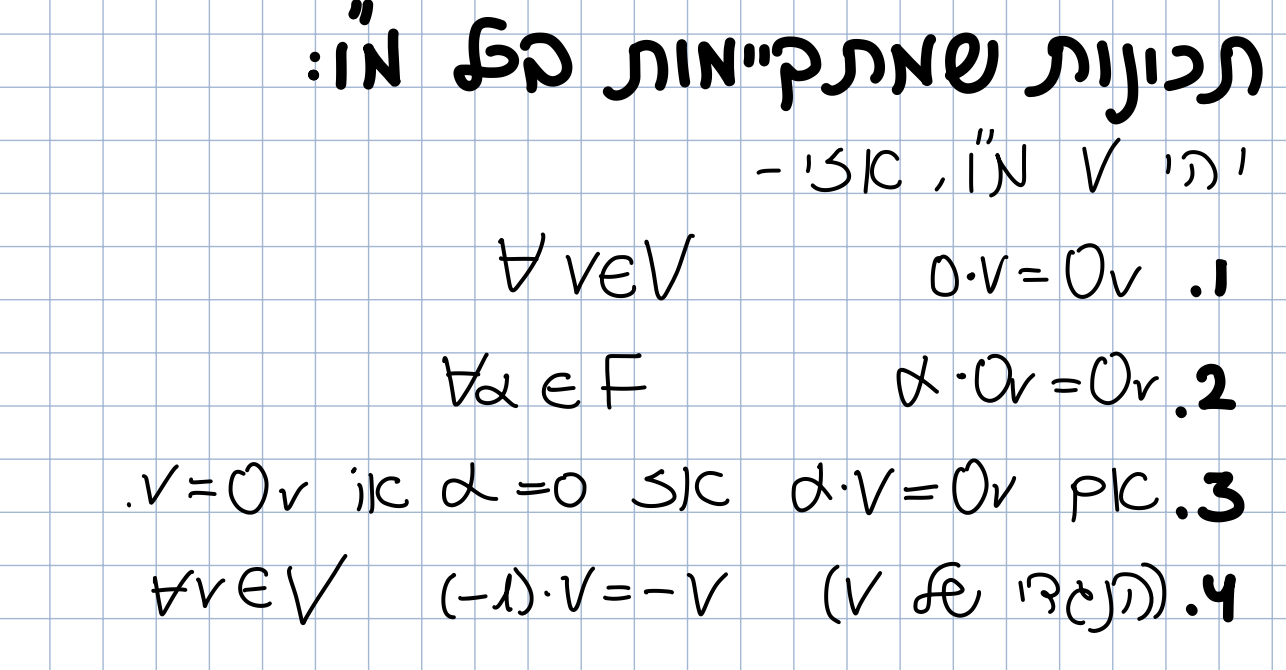 תכונות שמתקיימות בכל מ"ו:
יהי V מ"ו, אזי -
1. 0·v = 0v ∀ v∈V
2. α·0v = 0v ∀α ∈ F
3. אם α·v = 0v אז α = 0 או v = 0v.
4. (הנגדי של v) (-1)·v = -v ∀v∈V